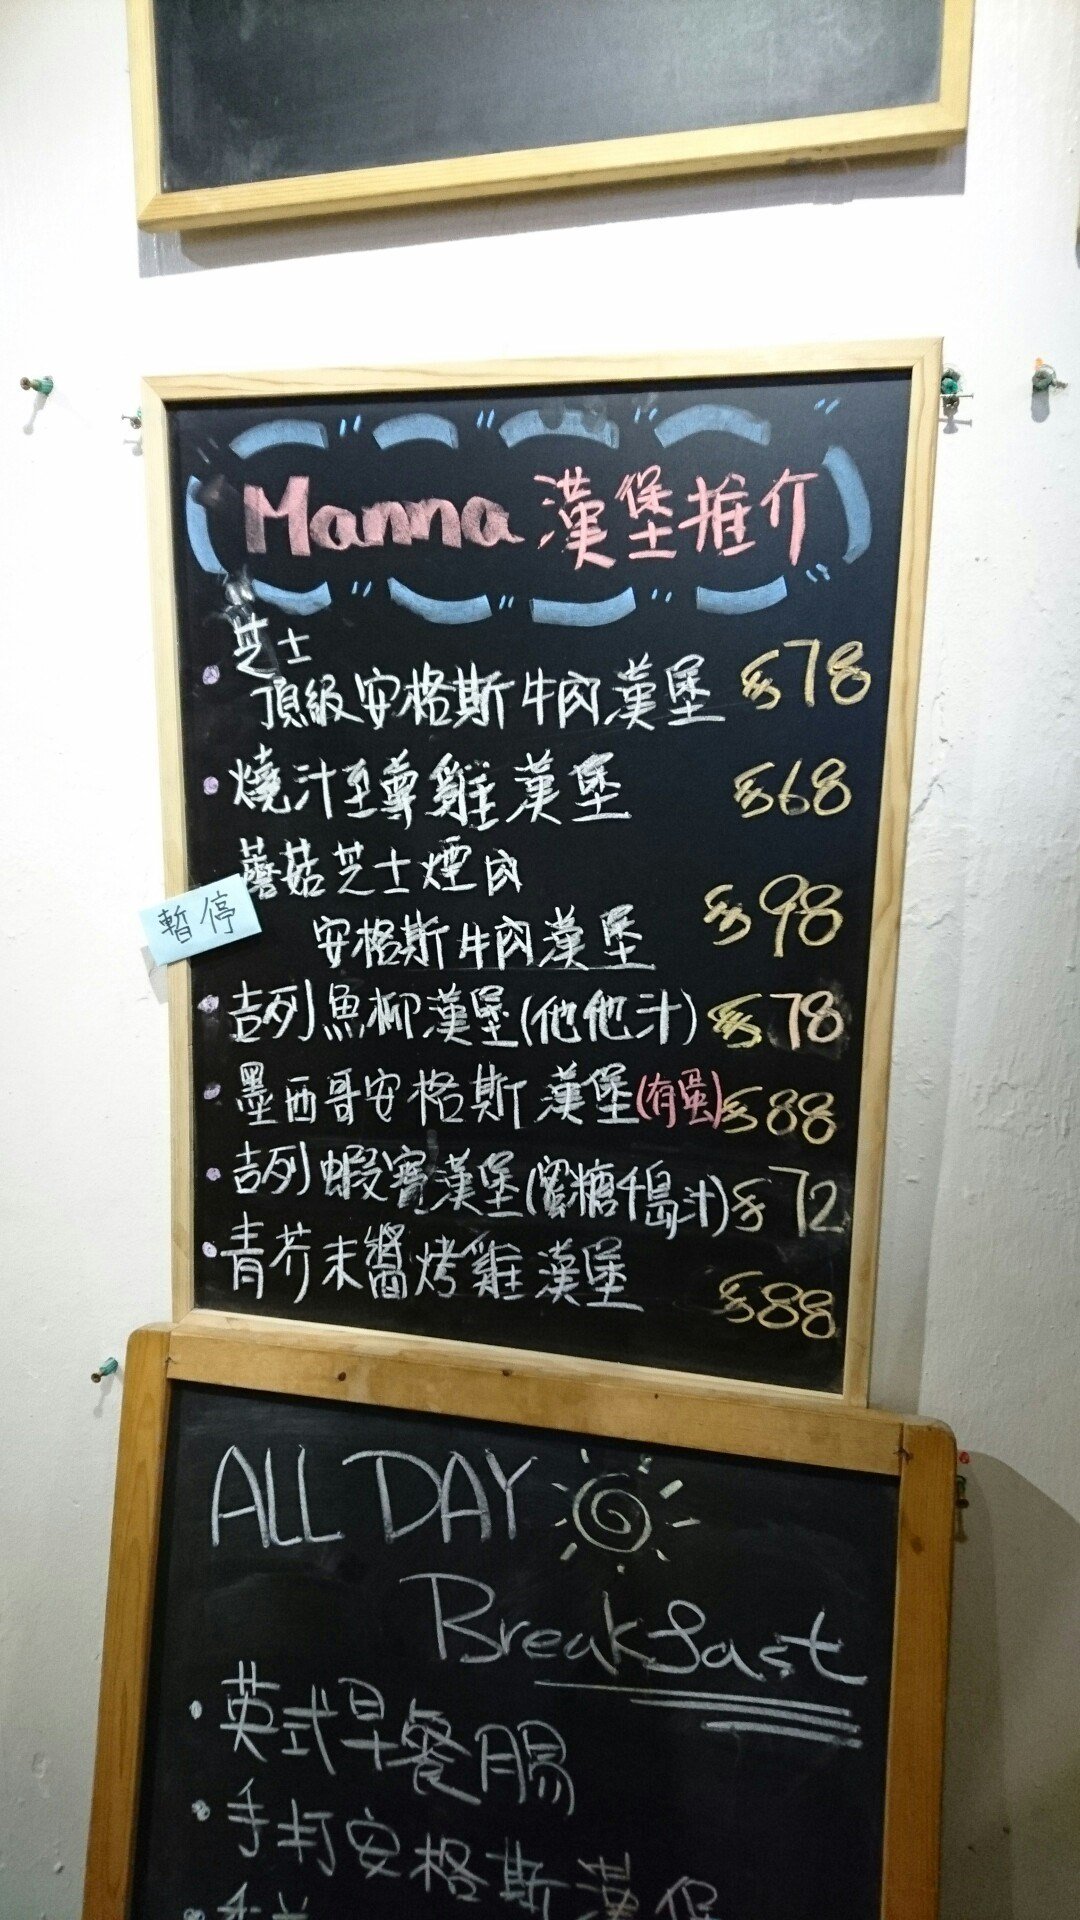 Manna 漢堡推介
芝士
頂級安格斯牛肉漢堡 $78
燒汁至尊雞漢堡 $68
蘑菇芝士煙肉
暫停
安格斯牛肉漢堡 $98
吉列魚柳漢堡(他他汁) $78
墨西哥安格斯漢堡(有蛋) $88
吉列蝦寶漢堡(蜜糖千島汁) $72
青芥末醬烤雞漢堡 $88
ALL DAY
Breakfast
英式早餐腸
手打安格斯漢堡